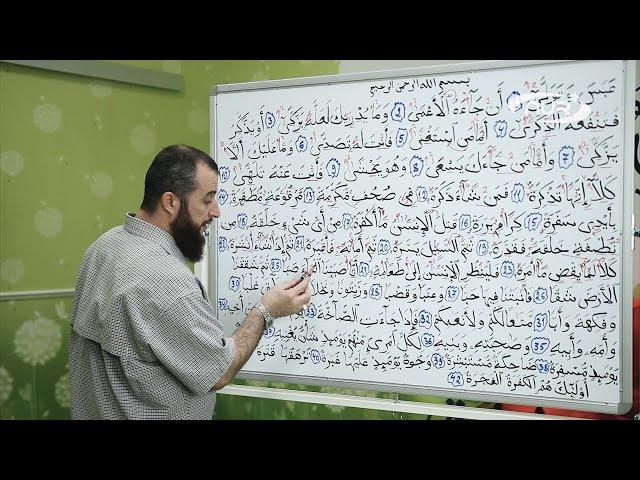 بسم الله الرحمن الرحيم
عَبَسَ وَتَوَلَّىٰ أَن جَآءَهُ ٱلْأَعْمَىٰ 2 وَمَا يُدْرِيكَ لَعَلَّهُ يَزَّكَّىٰ 3 أَوْ يَذَّكَّرُ
فَتَنفَعَهُ ٱلذِّكْرَىٰ 4 أَمَّا مَنِ ٱسْتَغْنَىٰ 5 فَأَنتَ لَهُ تَصَدَّىٰ 6 وَمَا عَلَيْكَ أَلَّا
يَزَّكَّىٰ 7 وَأَمَّا مَن جَآءَكَ يَسْعَىٰ 8 وَهُوَ يَخْشَىٰ 9 فَأَنتَ عَنْهُ تَلَهَّىٰ 10
كَلَّآ إِنَّهَا تَذْكِرَةٌ 11 فَمَن شَآءَ ذَكَرَهُ 12 فِى صُحُفٍ مُّكَرَّمَةٍ 13 مَّرْفُوعَةٍ مُّطَهَّرَةٍ 14
بِأَيْدِى سَفَرَةٍ 15 كِرَامٍ بَرَرَةٍ 16 قُتِلَ ٱلْإِنسَٰنُ مَآ أَكْفَرَهُ 17 مِنْ أَىِّ شَىْءٍ خَلَقَهُ 18 مِن
نُّطْفَةٍ خَلَقَهُ فَقَدَّرَهُ 19 ثُمَّ ٱلسَّبِيلَ يَسَّرَهُ 20 ثُمَّ أَمَاتَهُ فَأَقْبَرَهُ 21 ثُمَّ إِذَا شَآءَ أَنشَرَهُ 22
كَلَّا لَمَّا يَقْضِ مَآ أَمَرَهُ 23 فَلْيَنظُرِ ٱلْإِنسَٰنُ إِلَىٰ طَعَامِهِ 24 أَنَّا صَبَبْنَا صَبًّا 25 ثُمَّ شَقَقْنَا
ٱلْأَرْضَ شَقًّا 26 فَأَنۢبَتْنَا فِيهَا حَبًّا 27 وَعِنَبًا وَقَضْبًا 28 وَزَيْتُونًا وَنَخْلًا غُلْبًا
وَفَٰكِهَةً وَأَبًّا 31 مَّتَٰعًا لَّكُمْ وَلِأَنْعَٰمِكُمْ 32 فَإِذَا جَآءَتِ ٱلصَّآخَّةُ 33 أَخِيهِ
وَأُمِّهِ وَأَبِيهِ 35 وَصَٰحِبَتِهِ وَبَنِيهِ 36 لِكُلِّ ٱمْرِئٍ مِّنْهُمْ يَوْمَئِذٍ شَأْنٌ يُغْنِيهِ
يَوْمَئِذٍ مُّسْفِرَةٌ 38 ضَاحِكَةٌ مُّسْتَبْشِرَةٌ 39 وَوُجُوهٌ يَوْمَئِذٍ عَلَيْهَا غَبَرَةٌ 40 تَرْهَقُهَا قَتَرَةٌ
أُو۟لَٰٓئِكَ هُمُ ٱلْكَفَرَةُ ٱلْفَجَرَةُ 42